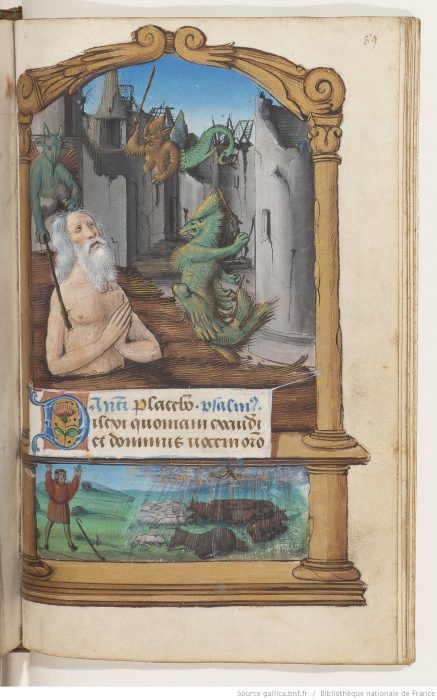 89
Anti Placebo. psalmꝰ.
Dilexi quoniam exaudi
et dominus uocem oro
Source gallica.bnf.fr / Bibliothèque nationale de France